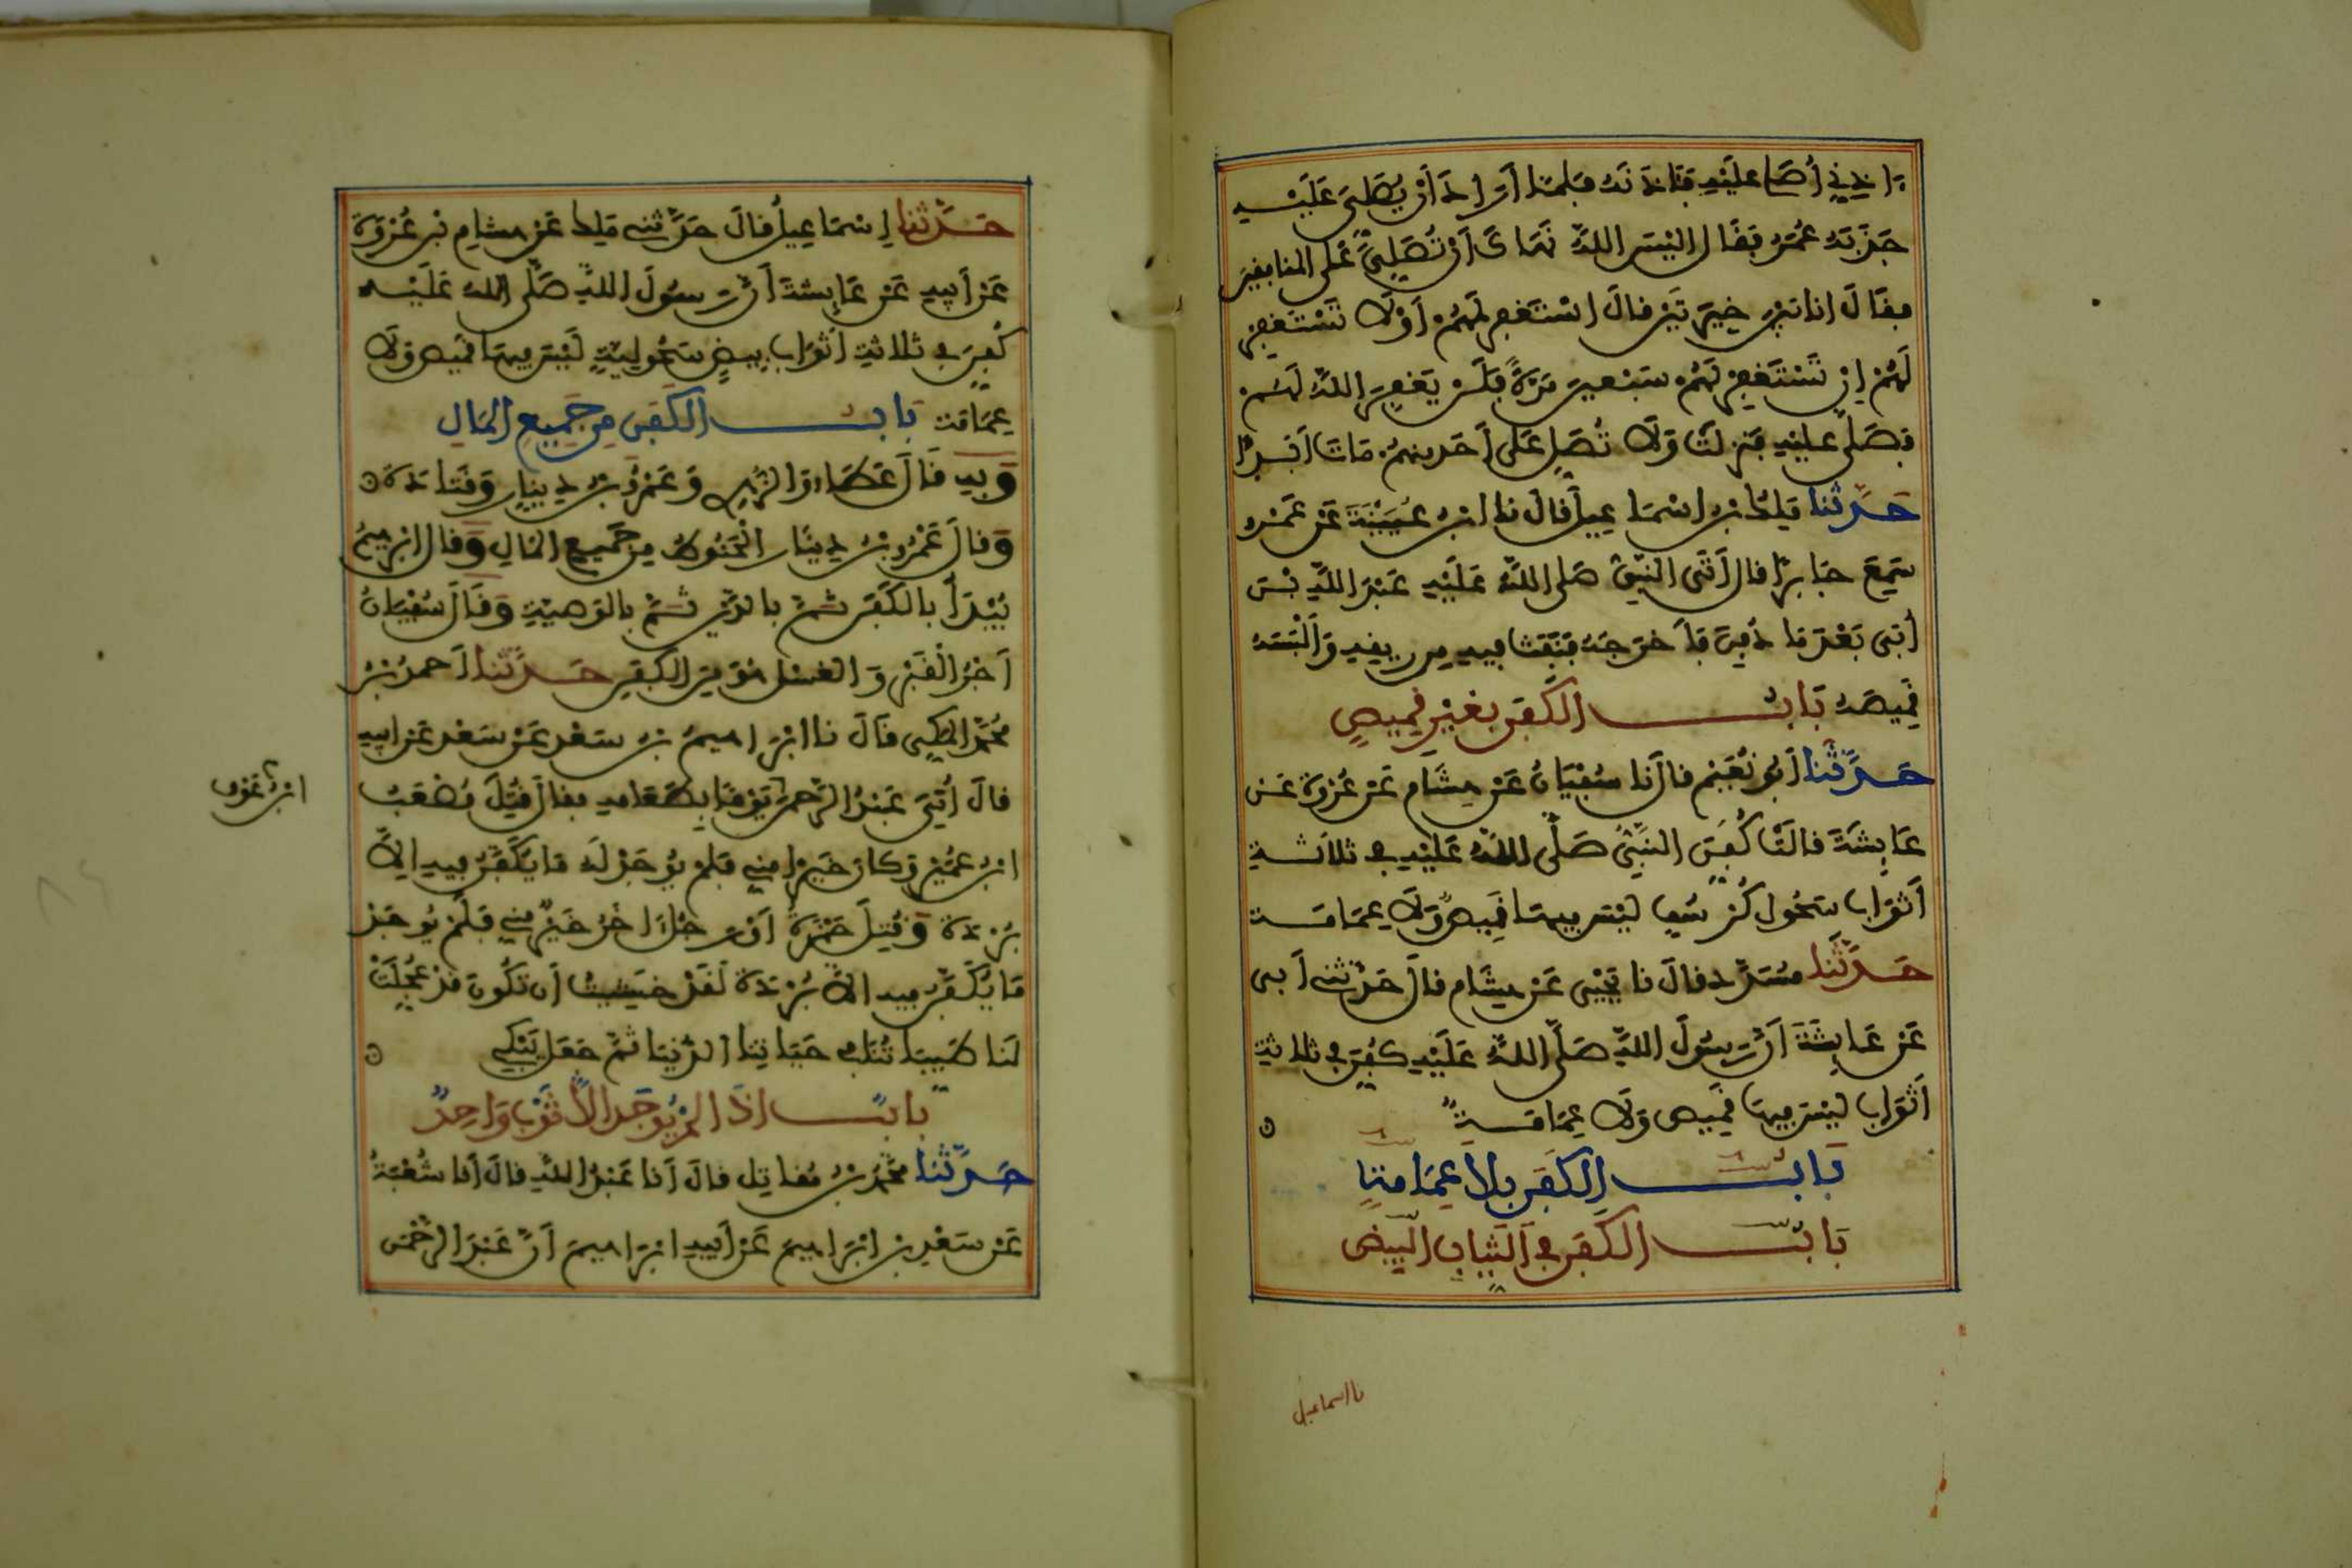 اذِنِّي أُصَلِّ عليْهِ فَئَاذَنَهُ فلمَّا أَرَادَ أَنْ يُصَلِّيَ عَلَيْهِ
جَذَبَهُ عُمَرُ فقَالَ اليْسَ اللَّهُ نَهَاكَ أَنْ تُصَلِّيَ عَلَى المنافِقِينَ
فقَالَ انا بَيْنَ خِيرَتَيْنِ قالَ اسْتَغْفِرْ لَهُمْ أَوْ لَا تَسْتَغْفِرْ
لَهُمْ إِن تَسْتَغْفِرْ لَهُمْ سَبْعِينَ مَرَّةً فَلَن يَغْفِرَ اللَّهُ لَهُمْ
فَصَلَّى عليْهِ فَنَزلَتْ وَلَا تُصَلِّ عَلَى أَحَدٍ مِنْهُمْ مَاتَ أَبَدًا
حَدَّثَنَا مَلِكُ بْنُ اسْمَاعِيلَ قالَ نا ابْنُ عُيَيْنَةَ عَنْ عَمْرٍو
سَمِعَ جَابِرًا قال أَتَى النَّبِيُّ صَلى اللَّهُ عَلَيْهِ عَبْدَ اللَّهِ بْنَ
أُبَيٍّ بَعْدَ مَا دُفِنَ فَأَخْرَجَهُ فَنَفَثَ فِيهِ مِن رِيقِهِ وَأَلْبَسَهُ
قَمِيصَهُ بَابُ الكَفَنِ بغَيْرِ قَمِيصٍ
حَدَّثَنَا أَبُو نُعَيْمٍ قالَ نا سُفْيَانُ عَنْ هِشَامٍ عَنْ عُرْوَةَ عَنْ
عَائِشَةَ قالَتْ كُفِّنَ النَّبِيُّ صَلَّى اللَّهُ عَلَيْهِ في ثلاثةِ
أَثْوَابٍ سَحُولَ كُرْسُفٍ ليْسَ فِيهَا قَمِيصٌ وَلَا عِمَامَة
حَدَّثَنَا مُسَدَّد قالَ نا يَحْيَى عَنْ هِشَامٍ قالَ حَدَّثَنِي أَبِي
عَنْ عَائِشَةَ أَنَّ رَسُولَ اللَّهِ صَلَّى اللَّهُ عَلَيْهِ كُفِّنَ في ثلاثةِ
أَثْوَابٍ ليْسَ فِيهَا قَمِيصٌ وَلَا عِمَامَةٌ
بَابُ الكَفَنِ بلَا عِمَامَةٍ
بَابُ الكَفَنِ في الثِّيَابِ البِيضِ
نا اسماعيل
حَدَّثَنَا إِسْمَاعِيلُ قالَ حَدَّثَنِي مَلِكٌ عَنْ هِشَامِ بْنِ عُرْوَةَ
عَنْ أَبِيهِ عَنْ عَائِشَةَ أَنَّ رَسُولَ اللَّهِ صَلَّى اللَّهُ عَلَيْهِ
كُفِّنَ في ثلاثةِ أَثْوَابٍ بِيضٍ سَحُولِيَّةٍ لَيْسَ فِيهَا قَمِيصٌ وَلَا
عِمَامَة بَابُ الكَفَنِ مِن جَمِيعِ المَالِ
وَبِهِ قَالَ عَطَاء وَالزُّهْرِي وَعَمْرُو بْنُ دِينَارٍ وَقَتَادَة
وَقالَ عَمْرُو بْنُ دِينَارٍ الْحَنُوطُ مِن جَمِيعِ المَالِ وَقال ابْرهيمُ
يُبْدَأُ بالكَفَنِ ثُمَّ بالدَّيْنِ ثُمَّ بالوَصِيَّةِ وَقَالَ سُفْيَانُ
أَجْرُ الْقَبْرِ وَالغَسْلِ هُوَ مِنَ الكَفَنِ حَدَّثَنَا أَحمدُ بْنُ
مُحَمَّدٍ المَكِّي قَالَ نا ابْرَاهيمُ بْنُ سَعْدٍ عَنْ سَعْدٍ عَنْ ابيهِ
قالَ أُتِيَ عَبْدُ الرَّحمنِ يَوْمًا بِطَعَامِهِ فقالَ قُتِلَ مُصْعَبُ
ابْنُ عَوْفٍ
ابْنُ عُمَيْرٍ وَكانَ خَيْرًا مِنِّي فَلم يُوجَدْ لَهُ مَا يُكَفَّنُ فِيهِ الَّا
بُرْدَة وَقُتِلَ حَمْزَةُ أَوْ رَجُلٌ اخَرُ خَيْرٌ مِنِّي فَلَمْ يُوجَدْ
مَا يُكَفَّنُ فِيهِ الَّا بُرْدَة لَقَدْ خَشِيتُ أَن تَكُونَ قَدْ عُجِّلَتْ
لَنَا طَيِّبَاتُنَا في حَيَاتِنَا الدُّنْيَا ثُمَّ جَعَلَ يَبْكِي
بَابُ اذَا لَمْ يُوجَد الَّا ثَوْبٌ وَاحِدٌ
حَدَّثَنَا مُحَمَّدُ بْنُ مُقَاتِلٍ قالَ أَنا عَبْدُ اللَّهِ قالَ أَنا شُعْبَةُ
عَنْ سَعْدِ بْنِ ابْرَاهِيمَ عَنْ أَبِيهِ ابْرَاهِيمَ أَنَّ عَبْدَ الرَّحْمَنِ